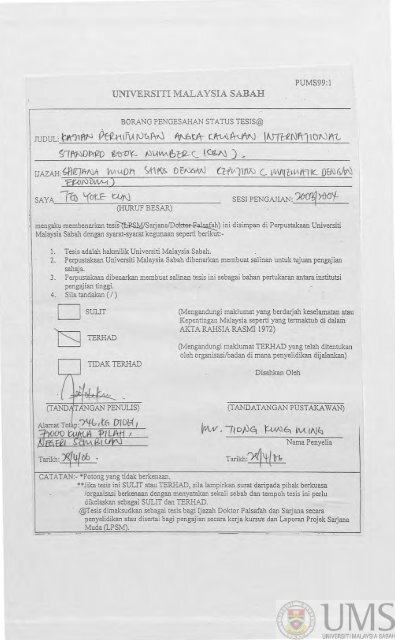 PUMS99:1
UNIVERSITI MALAYSIA SABAH
BORANG PENGESAHAN STATUS TESIS@
JUDUL: KAJIAN PERHITUNGAN ANGKA CALITAN INTERNATIONAL
STANDARD BOOK NUMBER (ISBN).
IJAZAH: SARJANA MUDA SAINS DENGAN KEPUJIAN (MATEMATIK DENGAN
EKONOMI)
SAYA TEO YOKE KUN SESI PENGAJIAN: 2003/2004
(HURUF BESAR)
mengaku membenarkan tesis (LPSM/Sarjana/Doktor Falsafah) ini disimpan di Perpustakaan Universiti
Malaysia Sabah dengan syarat-syarat kegunaan seperti berikut:-
1. Tesis adalah hakmilik Universiti Malaysia Sabah.
2. Perpustakaan Universiti Malaysia Sabah dibenarkan membuat salinan untuk tujuan pengajian
sahaja.
3. Perpustakaan dibenarkan membuat salinan tesis ini sebagai bahan pertukaran antara institutsi
pengajian tinggi.
4. Sila tandakan ( / )
SULIT (Mengandungi maklumat yang berdarjah keselamatan atau
Kepentingan Malaysia seperti yang termaktub di dalam
AKTA RAHSIA RASMI 1972)
TERHAD
(Mengandungi maklumat TERHAD yang telah ditentukan
oleh organisasi/badan di mana penyelidikan dijalankan)
TIDAK TERHAD
Disahkan Oleh
(TANDATANGAN PENULIS) (TANDATANGAN PUSTAKAWAN)
Alamat Tetap: 746, KG DIOH,
72000 KUALA PILAH,
NEGERI SEMBILAN
Mr. TIONG KUNG MING
Nama Penyelia
Tarikh: 28/4/06. Tarikh: 28/4/06
CATATAN:- *Potong yang tidak berkenaan.
**Jika tesis ini SULIT atau TERHAD, sila lampirkan surat daripada pihak berkuasa
/organisasi berkenaan dengan menyatakan sekali sebab dan tempoh tesis ini perlu
dikelaskan sebagai SULIT dan TERHAD.
@Tesis dimaksudkan sebagai tesis bagi Ijazah Doktor Falsafah dan Sarjana secara
penyelidikan atau disertai bagi pengajian secara kerja kursus dan Laporan Projek Sarjana
Muda (LPSM).
UMS
UNIVERSITI MALAYSIA SABAH